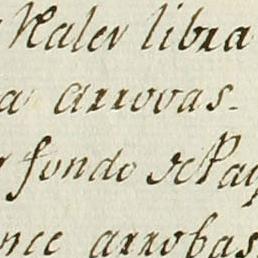 Haler libra
a arrovas.
fondo de Pa
nce arrobas